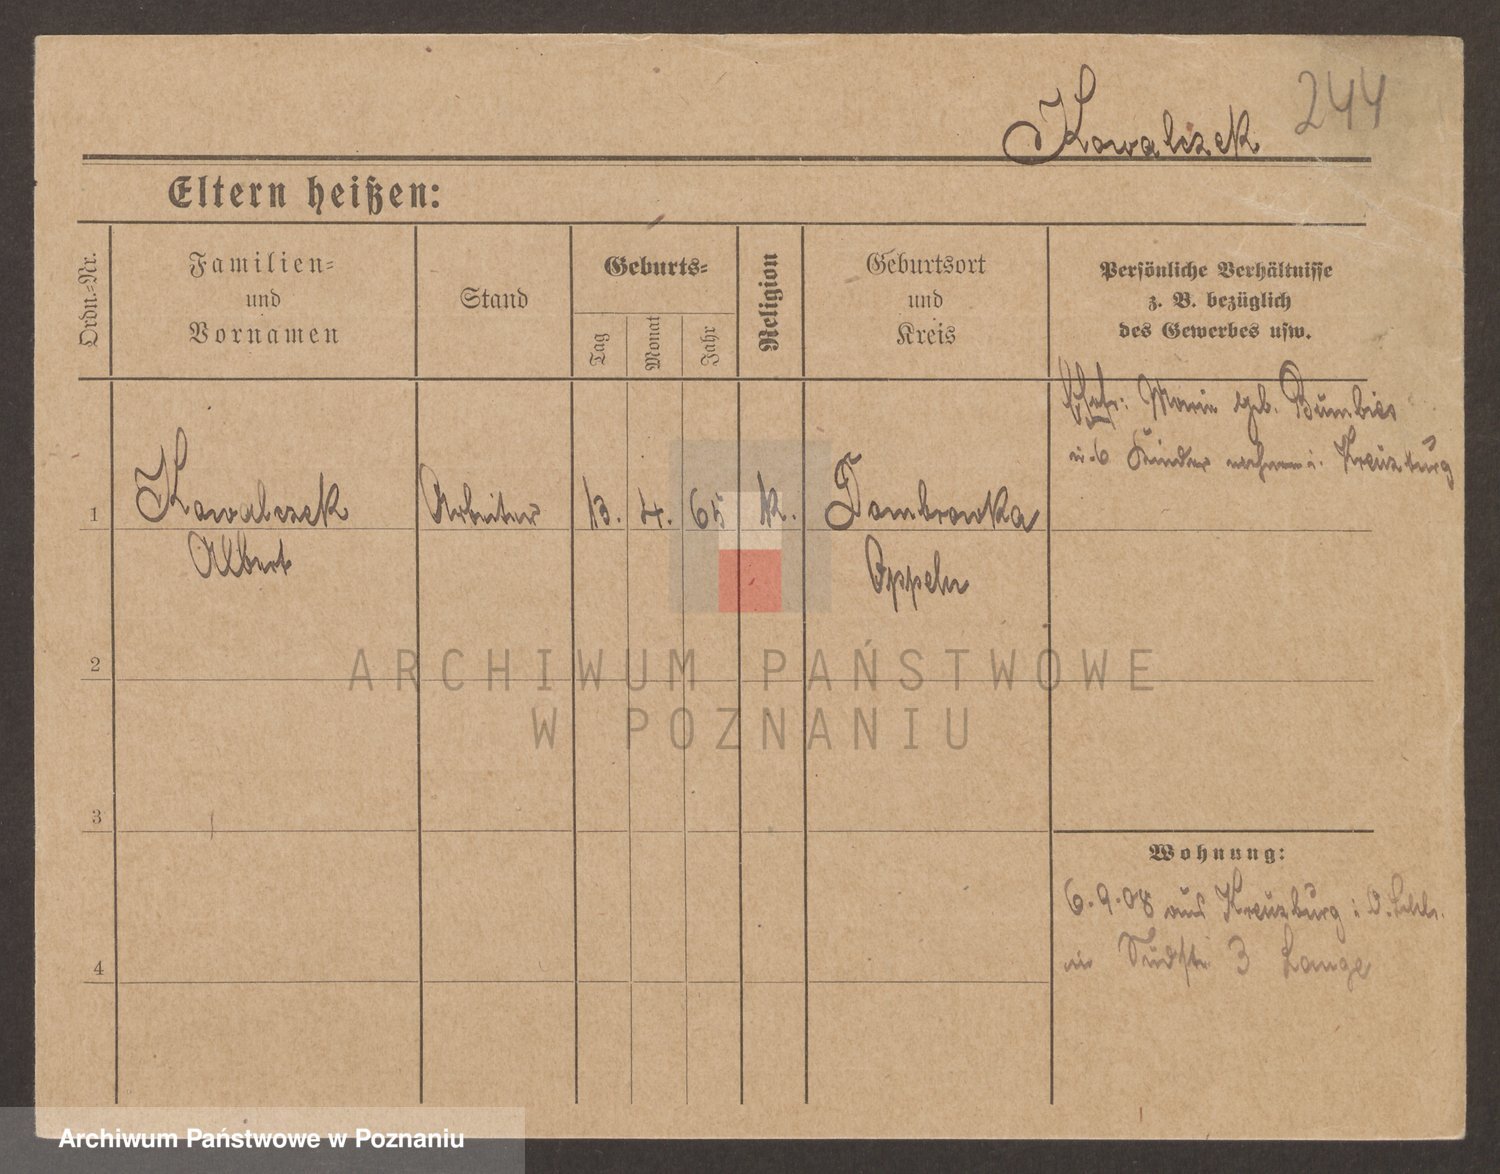 Kowalczek 244
Eltern heißen:
Ordn.-Nr.
Familien-
und
Vornamen
Stand
Geburts-
Tag
Monat
Jahr
Religion
Geburtsort
und
Kreis
Persönliche Verhältnisse
z. B. bezüglich
des Gewerbes usw.
Ehefr: Marie geb.
Kinder i. Kreuzburg
1 Kowalczek Arbeiter 13. 4. 65 k. Dombrowka
Albert Oppeln
2
ARCHIWUM PAŃSTWOWE
W POZNANIU
3
Wohnung:
6.9.08 aus Kreuzburg i O.Schls.
in Südstr 3 Lange
4
Archiwum Państwowe w Poznaniu